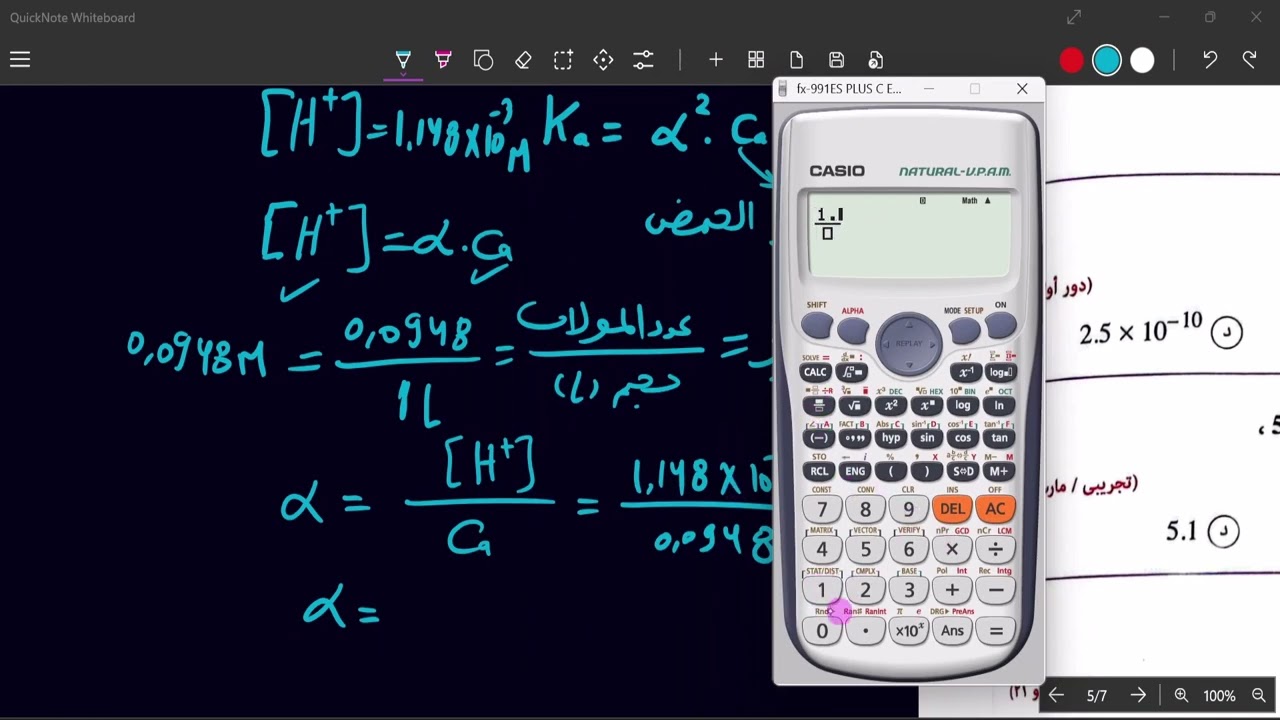 QuickNote Whiteboard
[H⁺]=1.148×10⁻³ M Ka = α². Ca
[H⁺]=α.Ca
الحمض
0,0948M = 0,0948 / 1L = عدد المولات / حجم (L) =
α = [H⁺] / Ca = 1,148 × 10 / 0,0948
α =
fx-991ES PLUS C E...
CASIO
NATURAL-V.P.A.M.
Math
1.
SHIFT ALPHA MODE SETUP ON
REPLAY
SOLVE =
CALC x⁻¹ log
x³ DEC HEX 10ˣ BIN eˣ OCT
x² log ln
FACT B Abs C sin⁻¹ D cos⁻¹ E tan⁻¹ F
(−) hyp sin cos tan
STO i % , X M− M
RCL ENG ( ) S⇔D M+
CONST CONV CLR INS OFF
7 8 9 DEL AC
MATRIX VECTOR VERIFY nPr GCD nCr LCM
4 5 6 × ÷
STAT/DIST CMPLX BASE Pol Int Rec Intg
1 2 3 + −
Rnd Ran# RanInt π e DRG▶ PreAns
0 . ×10ˣ Ans =
(دور أو
د 2.5 × 10⁻¹⁰
، 5
(تجريبى / مار
د 5.1
و ٢١)
5/7 100%